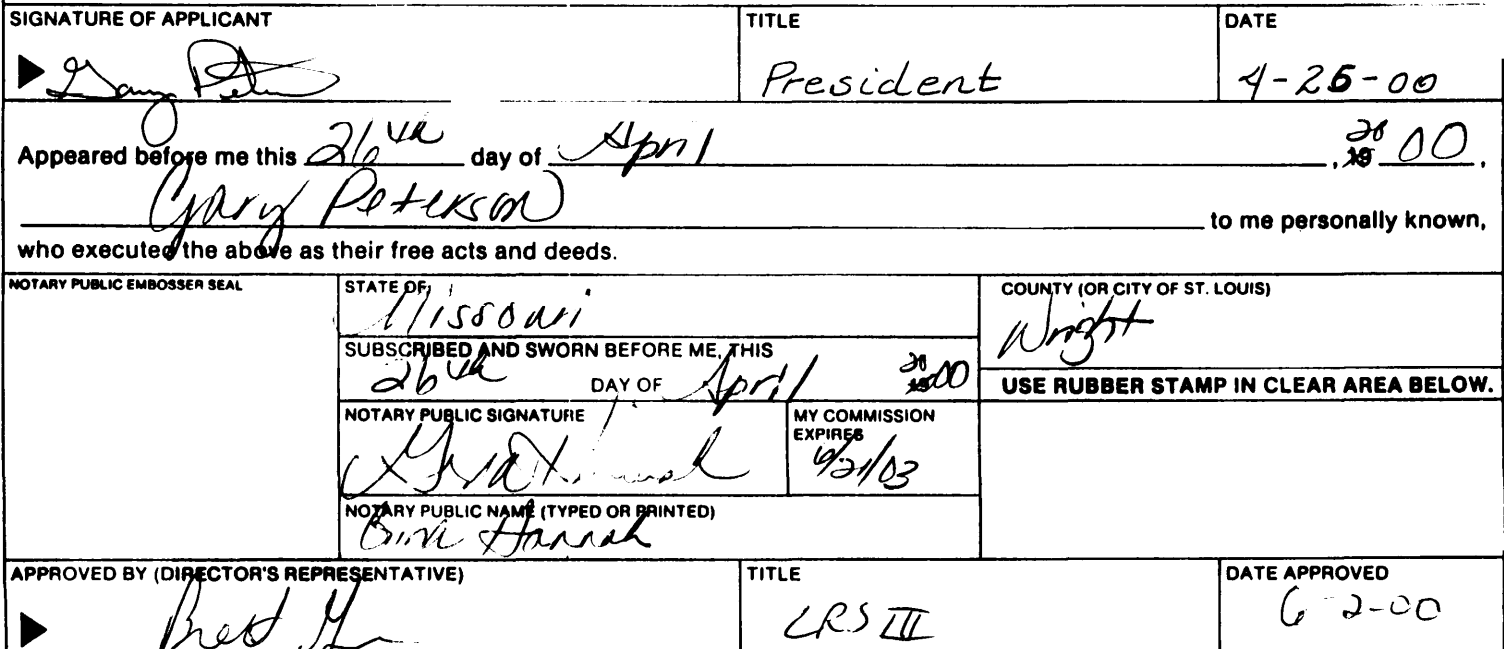 SIGNATURE OF APPLICANT TITLE DATE
Gary President 4-26-00
Appeared before me this 26th day of April , 20 00 ,
Gary Peterson to me personally known,
who executed the above as their free acts and deeds.
NOTARY PUBLIC EMBOSSER SEAL STATE OF COUNTY (OR CITY OF ST. LOUIS)
Missouri Wright
SUBSCRIBED AND SWORN BEFORE ME, THIS
26th DAY OF April 20 00 USE RUBBER STAMP IN CLEAR AREA BELOW.
NOTARY PUBLIC SIGNATURE MY COMMISSION
EXPIRES
6/21/03
NOTARY PUBLIC NAME (TYPED OR PRINTED)
Hannah
APPROVED BY (DIRECTOR'S REPRESENTATIVE) TITLE DATE APPROVED
Brett LRS III 6-2-00